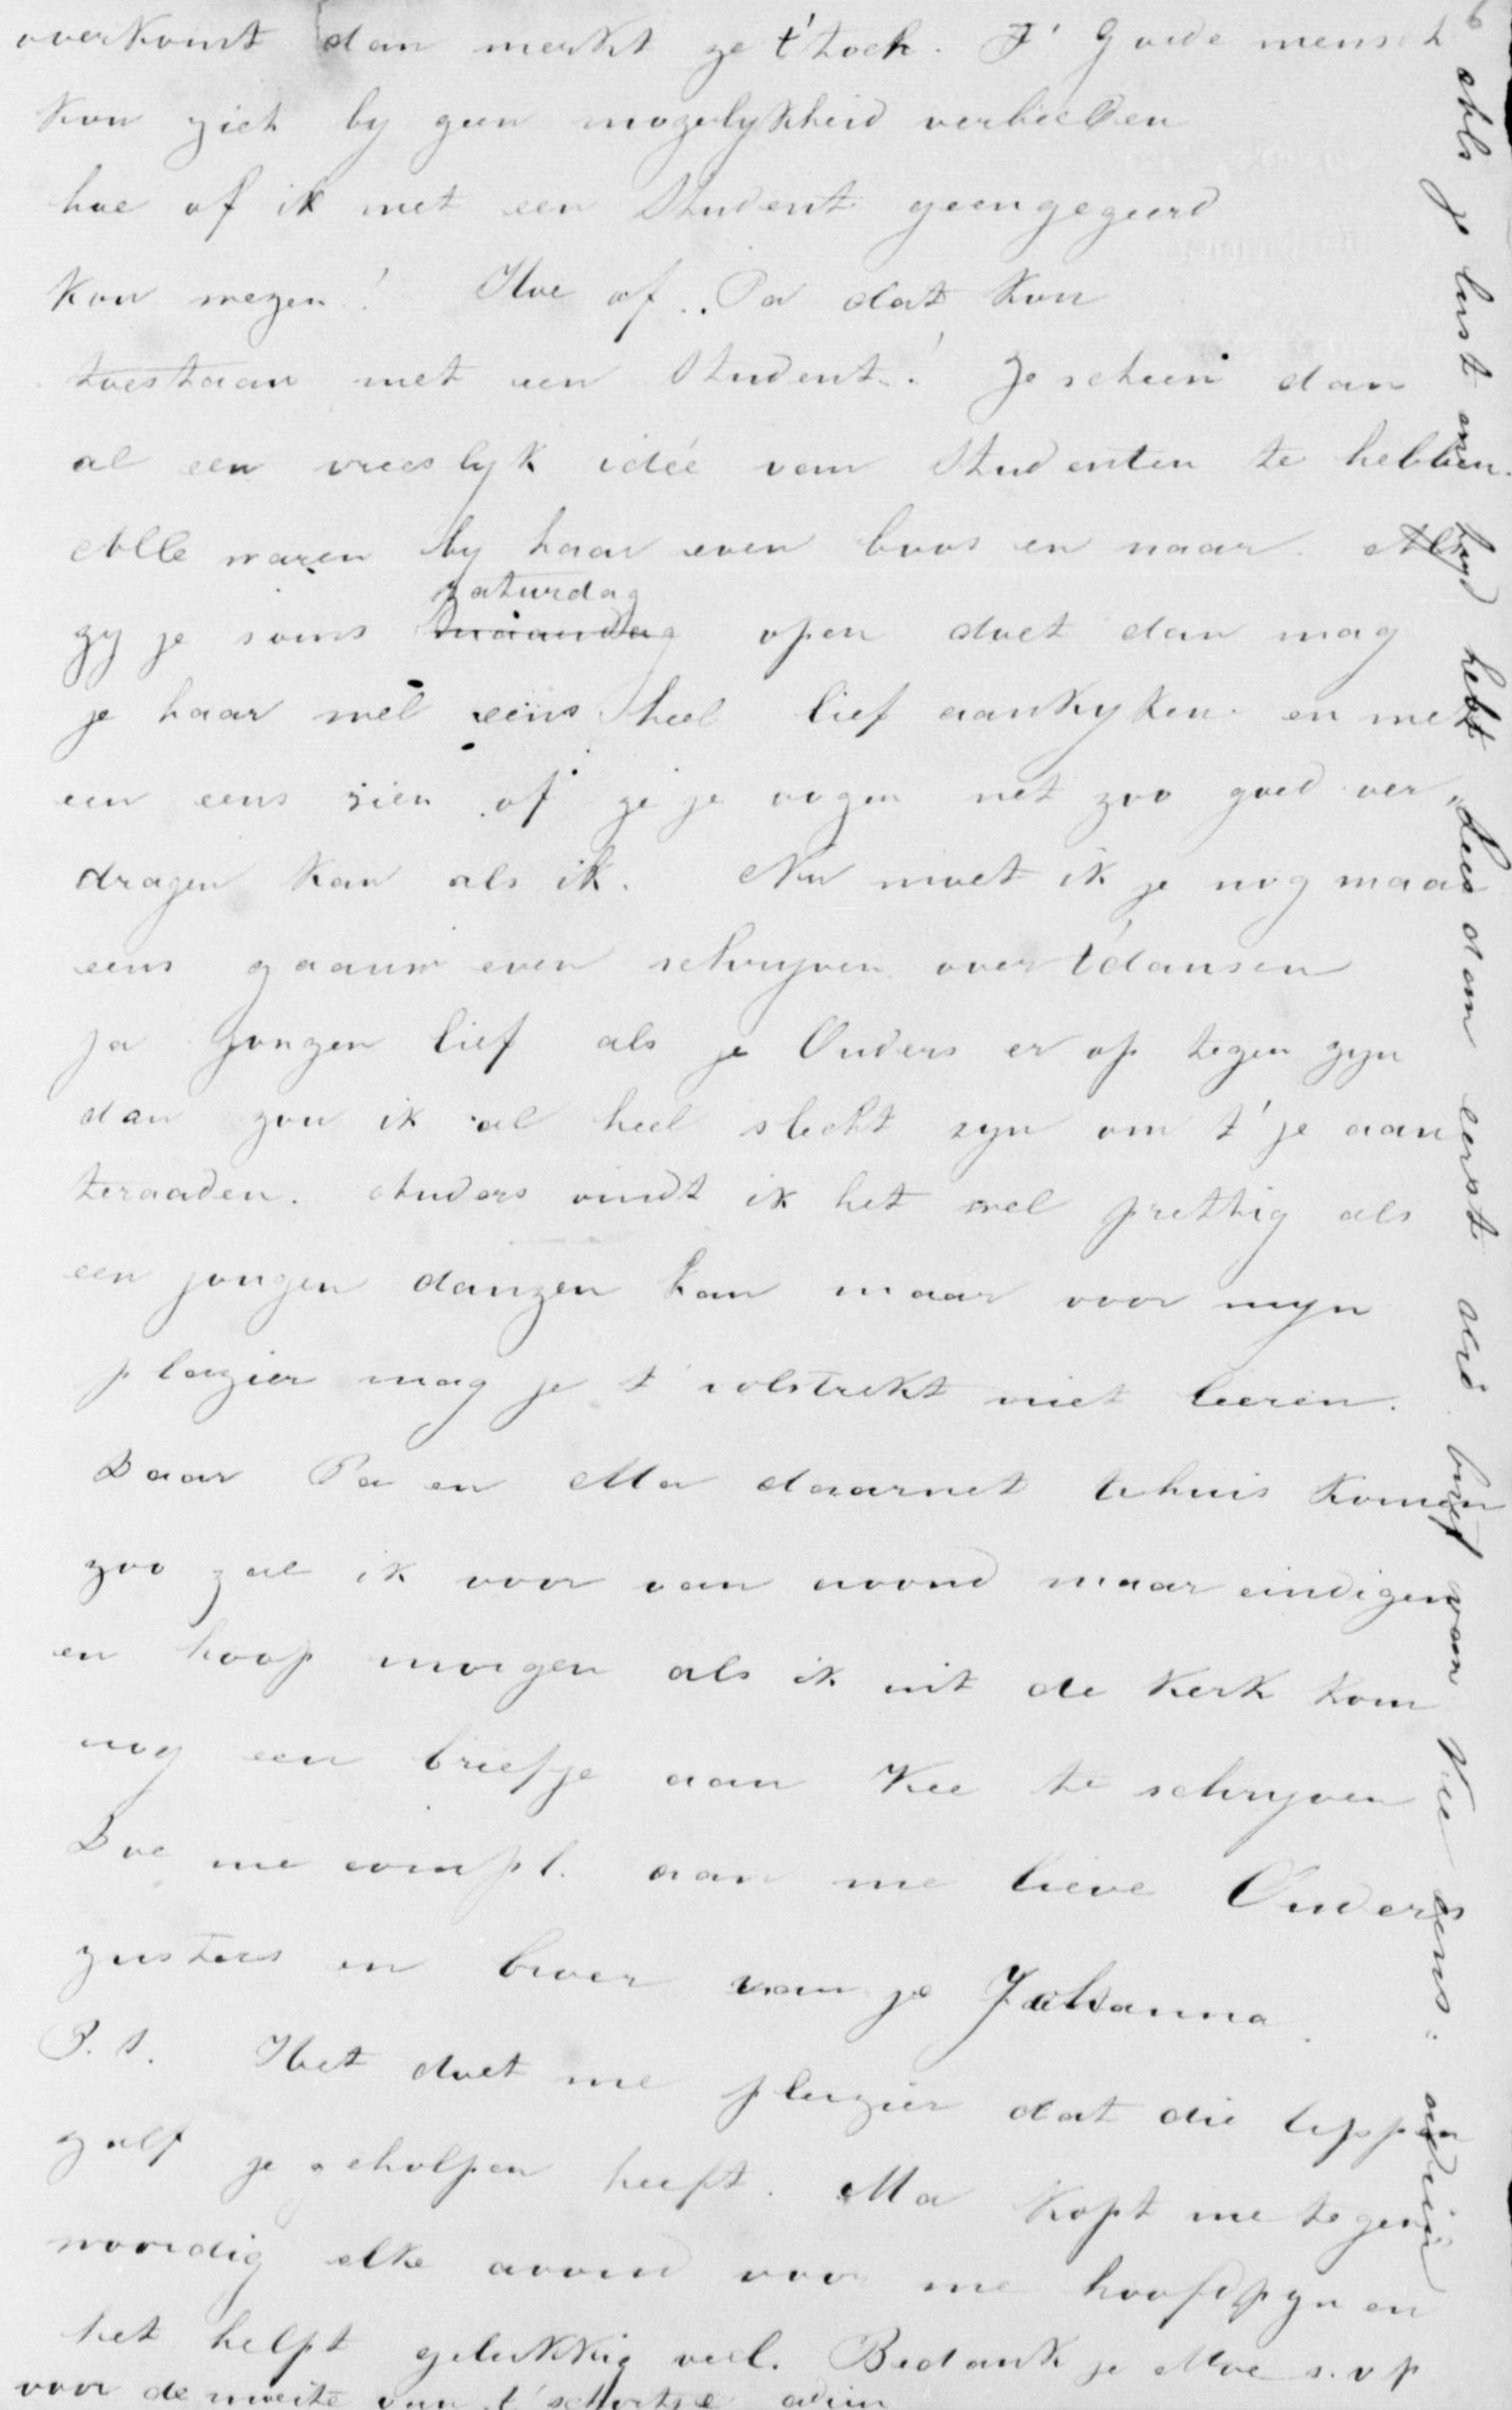 overkomt dan merkt ze t'toch. T' Goede mensch
kon zich by geen mogelykheid verbeelden
hoe of ik met een Student geengegeerd
kon wezen! Hoe of .. Pa dat kon
toestaan met een Student.! Je scheen dan
al een vreeslyk idée van Studenten te hebben.
Alle waren by haar even boos en naar. Als
zaturdag
zy je soms maandag open doet dan mag
je haar wel eens heel lief aankyken en met
een eens zien of ze je oogen net zoo goed ver
dragen kan als ik. Nu moet ik je nog maar
eens gaauw even schryven over t'dansen
ja Jongen lief als je Ouders er op tegen zyn
dan zou ik al heel slecht zyn om t' je aan
teraaden. Anders vindt ik het wel prettig als
een jongen danzen kan maar voor myn
plezier mag je t' volstrekt niet leeren.
Daar Pa en Ma daarnet tehuis komen
zoo zal ik voor van avond maar eindigen
en hoop morgen als ik uit de Kerk kom
nog een briefje aan Kee te schryven
Doe me compl. aan me lieve Ouders
zusters en broer van je Johanna.
P.S. Het doet me plezier dat die lippen
zalf je geholpen heeft. Ma kopt me tegen
woordig elke avond voor me hoofdpyn en
het helpt gelukkig veel. Bedank je Moe s.v.p
voor de moeite van t' schortje adieu
Als je lust en tyd hebt "Lees dan eerst die brief van Kee eens." adieu